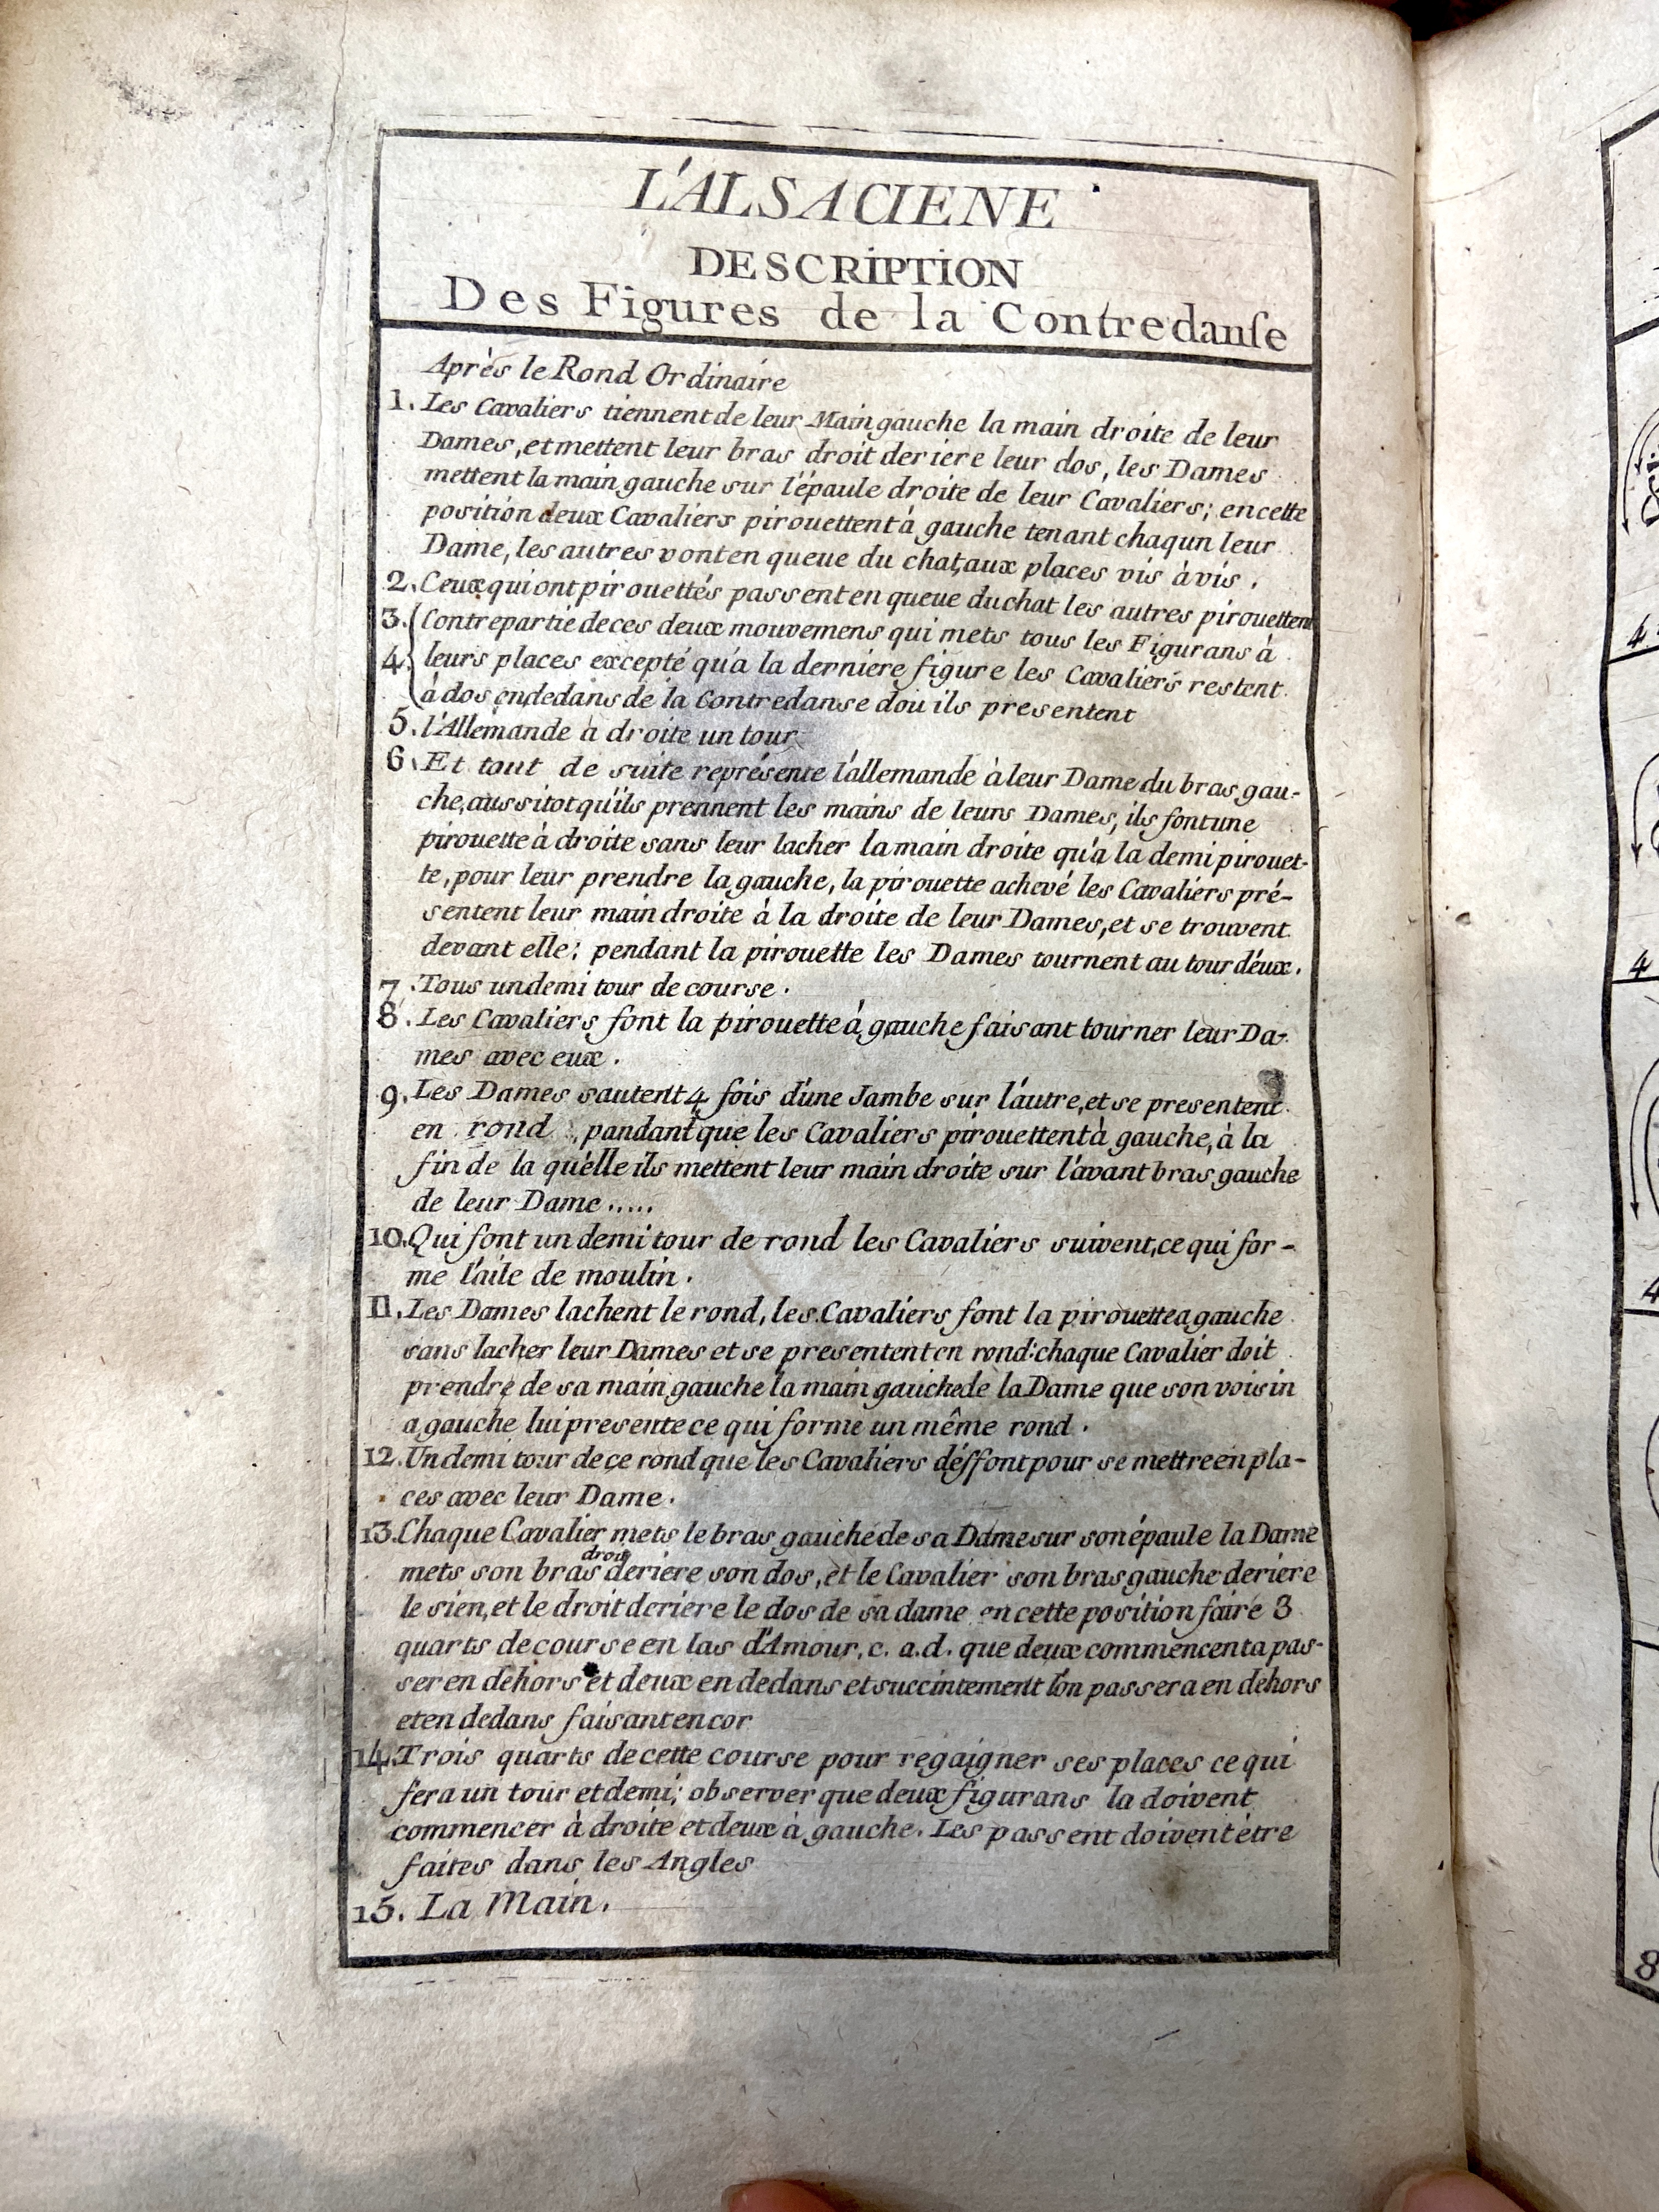 L'ALSACIENE
DESCRIPTION
Des Figures de la Contredanse
Après le Rond Ordinaire
1. Les Cavaliers tiennent de leur Main gauche la main droite de leur
Dames, et mettent leur bras droit deriere leur dos, les Dames
mettent la main gauche sur l'épaule droite de leur Cavaliers; en cette
position deux Cavaliers pirouettent à gauche tenant chaqun leur
Dame, les autres vont en queue du chat, aux places vis à vis.
2. Ceux qui ont pirouettés passent en queue du chat les autres pirouettent
3. Contrepartie de ces deux mouvemens qui mets tous les Figurans à
4. leurs places excepté qu'a la derniere figure les Cavaliers restent
à dos en dedans de la Contredanse dou ils presentent
5. l'Allemande à droite un tour
6. Et tout de suite représente l'allemande à leur Dame du bras gau-
che, aussitot qu'ils prennent les mains de leurs Dames, ils font une
pirouette à droite sans leur lacher la main droite qu'a la demi pirouet-
te, pour leur prendre la gauche, la pirouette achevé les Cavaliers pré-
sentent leur main droite à la droite de leur Dames, et se trouvent
devant elle; pendant la pirouette les Dames tournent au tour d'eux.
7. Tous un demi tour de course.
8. Les Cavaliers font la pirouette à gauche faisant tourner leur Da-
mes avec eux.
9. Les Dames sautent 4 fois d'une Jambe sur l'autre, et se presentent
en rond, pandant que les Cavaliers pirouettent à gauche, à la
fin de la qu'elle ils mettent leur main droite sur l'avant bras gauche
de leur Dame.....
10. Qui font un demi tour de rond les Cavaliers suivent, ce qui for-
me l'aile de moulin.
11. Les Dames lachent le rond, les Cavaliers font la pirouette a gauche
sans lacher leur Dames et se presentent en rond: chaque Cavalier doit
prendre de sa main gauche la main gauche de la Dame que son voisin
a gauche lui presente ce qui forme un même rond.
12. Un demi tour de ce rond que les Cavaliers déffont pour se mettre en pla-
ces avec leur Dame.
13. Chaque Cavalier mets le bras gauche de sa Dame sur son épaule la Dame
droit
mets son bras deriere son dos, et le Cavalier son bras gauche deriere
le sien, et le droit deriére le dos de sa dame en cette position faire 3
quarts de course en las d'Amour, c. a. d. que deux commencent a pas-
ser en dehors et deux en dedans et succintement l'on passera en dehors
et en dedans faisant encor
14. Trois quarts de cette course pour regaigner ses places ce qui
fera un tour et demi; observer que deux figurans la doivent
commencer à droite et deux à gauche. Les passent doivent étre
faites dans les Angles
15. La Main.
4
4
4
8